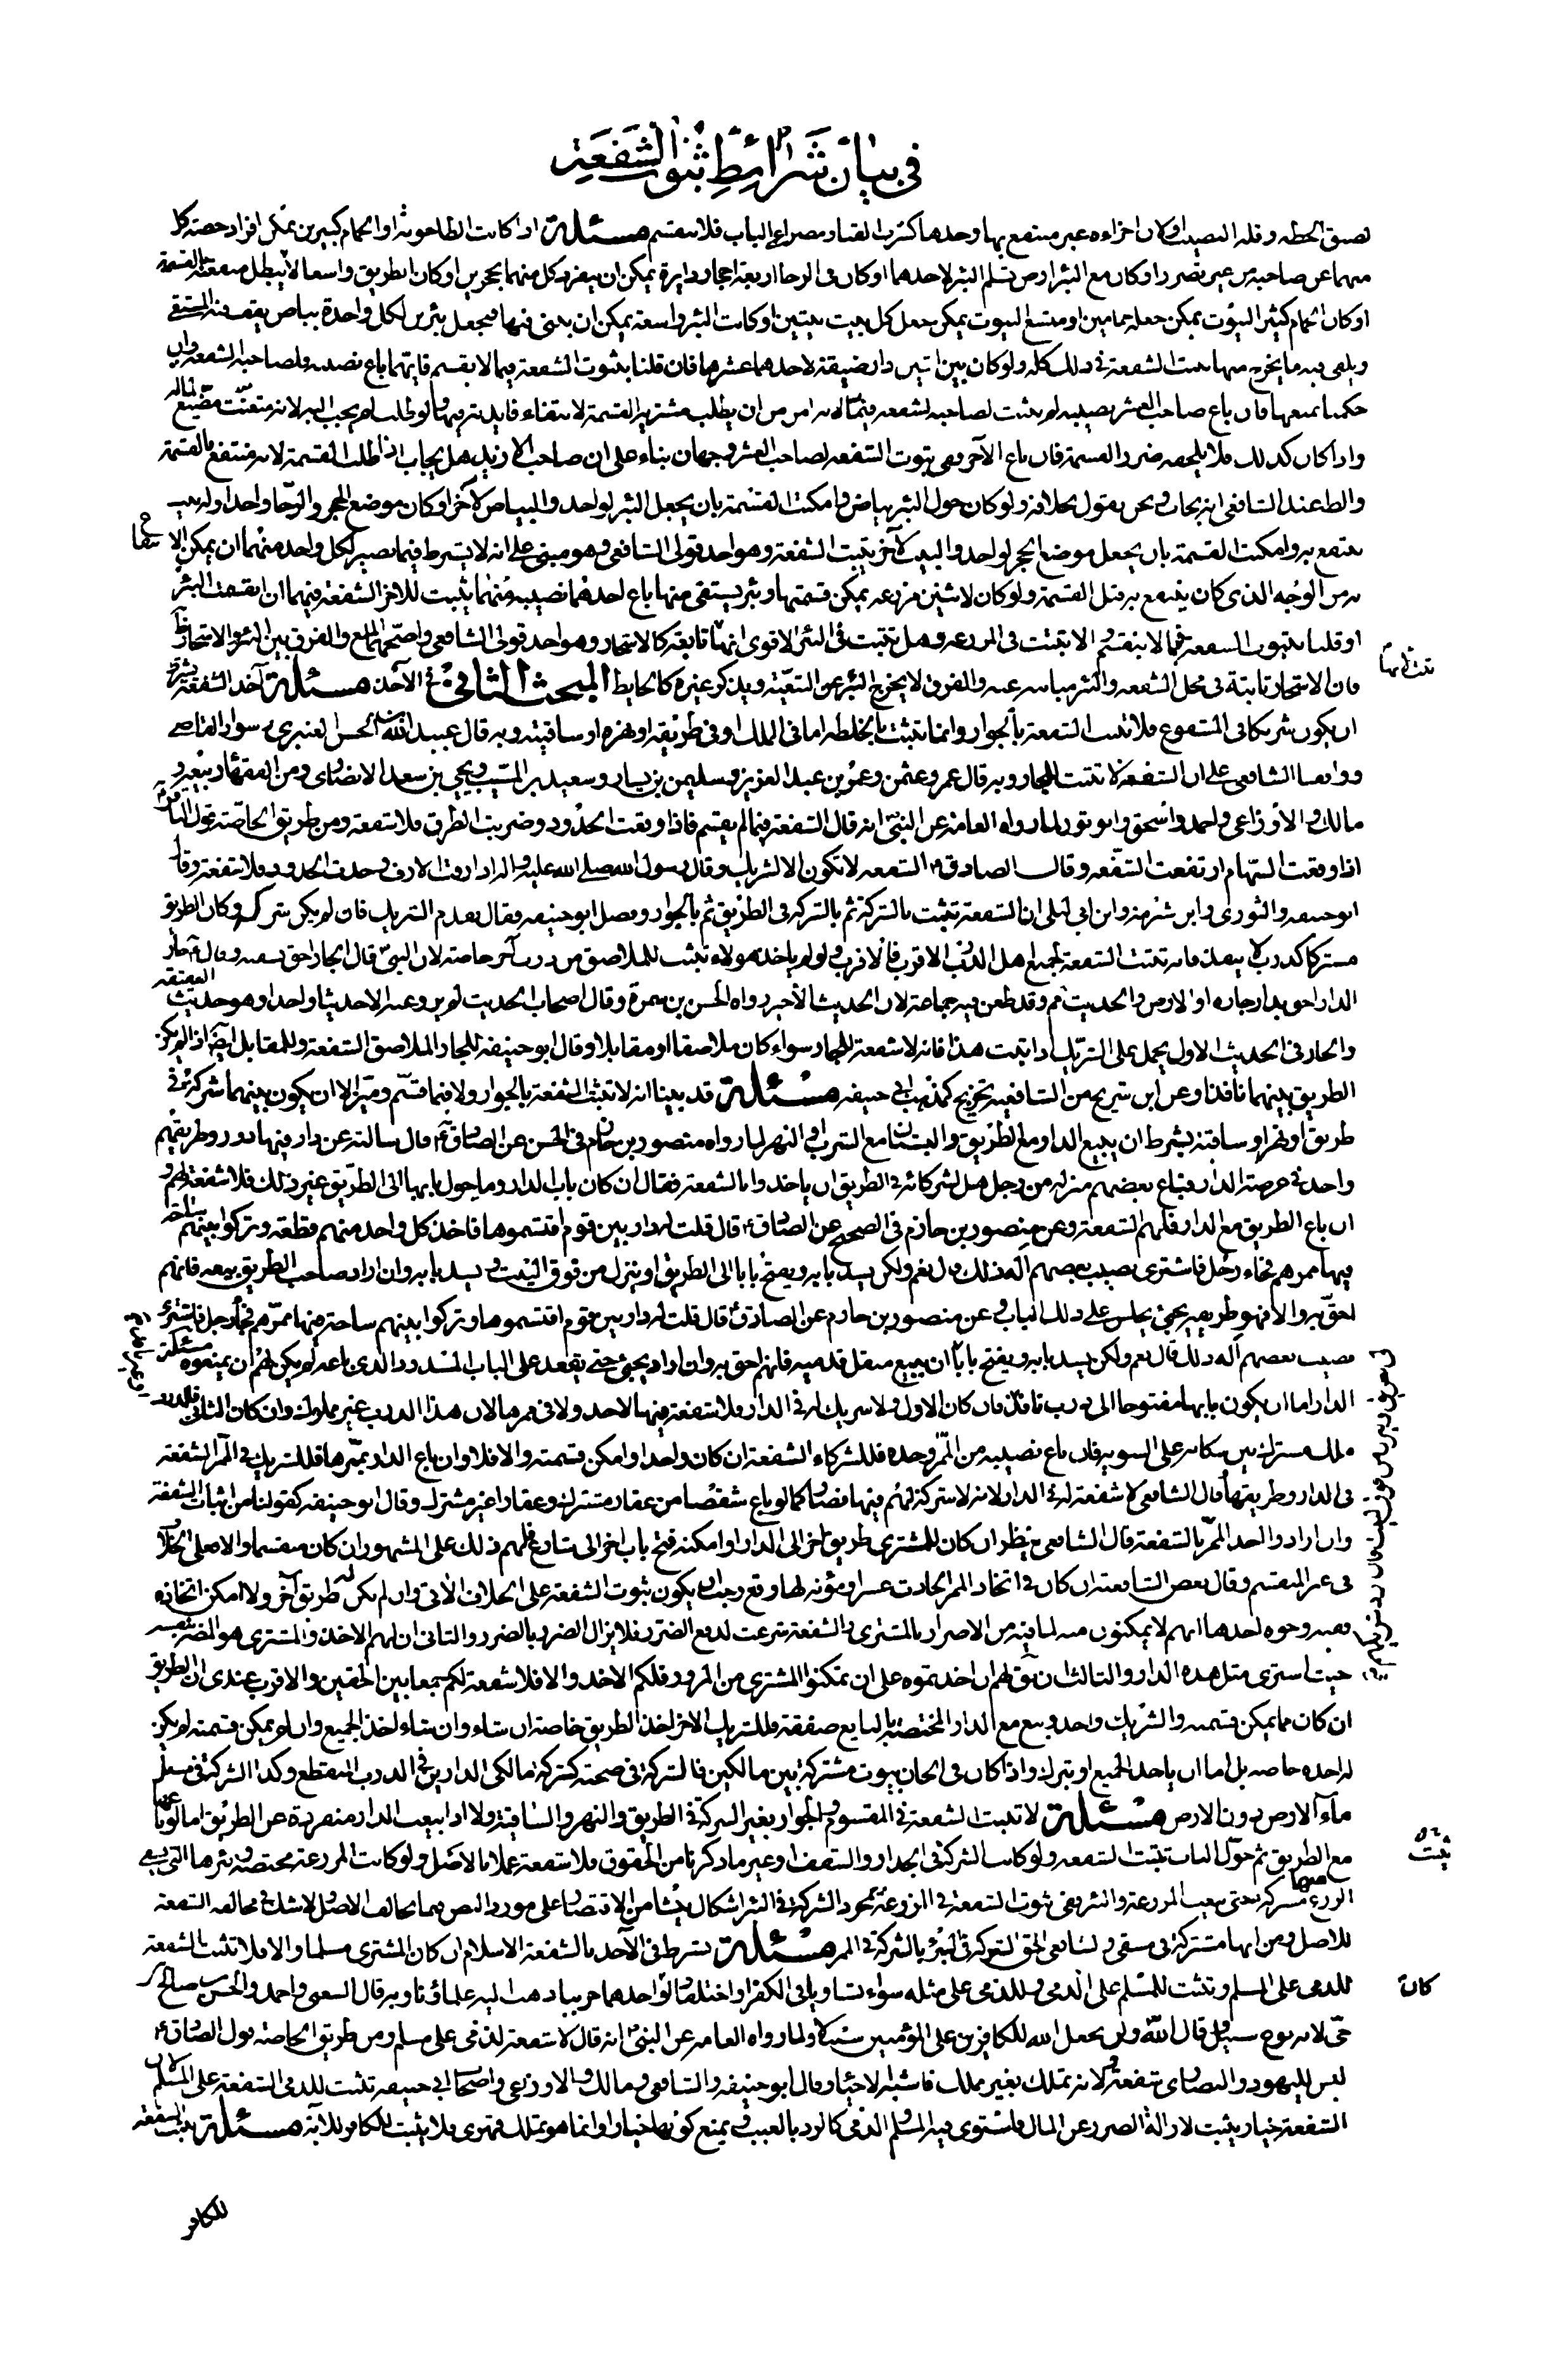 في بيان شرائط ثبوت الشفعة
لضيق الخطة وقلة النصيب او لان اجزاءه غير منتفع بها وحدها كشرب القناة ومصراعي الباب فلا تقسم مسئلة اذا كانت الطاحونة او الحمام كبيرين يمكن افراز حصة كل
منهما عن صاحبه من غير تضرر او كان مع البئر ارض تسلم البئر لاحدهما او كان في الرحا اربعة احجار دايرة يمكن ان ينفرد كل منهما بحجرين او كان الطريق واسعا لا تبطل منفعته بالقسمة
او كان الحمام كثير البيوت يمكن جعله حمامين او متسع البيوت يمكن جعل كل بيت بيتين او كانت البئر واسعة يمكن ان يبنى فيها فتجعل بئرين لكل واحدة بياض يقف فيه المستقي
ويلقى فيه ما يخرج منها ثبتت الشفعة في ذلك كله ولو كان بين اثنين دار ضيقة لاحدهما عشرها فان قلنا بثبوت الشفعة فيما لا يقسم فايهما باع نصيبه فلصاحبه الشفعة وان
حكمنا بمنعها فان باع صاحب العشر نصيبه لم يثبت لصاحبه الشفعة لانه امن من ان يطلب مشتريه القسمة لانتفاء فايدته فيها ولو طلب لم يجب اليه لانه متعنت مضيع لماله
واذا كان كذلك فلا يلحقه ضرر القسمة فان باع الآخر ففي ثبوت الشفعة لصاحب العشر وجهان بناء على ان صاحب الازيد هل يجاب اذا طلب القسمة لانه منتفع بالقسمة
والظ عند الشافعي انه يجاب ونحن نقول بخلافه ولو كان حول البئر بياض وامكنت القسمة بان يجعل البئر لواحد والبياض لآخر او كان موضع الحجر والرحا واحدا وله بيت
ينتفع به وامكنت القسمة بان يجعل موضع الحجر لواحد والبيت لآخر يثبت الشفعة وهو احد قولي الشافعي وهو مبني على انه لا يشترط فيما يصير لكل واحد منهما ان يمكن الانتفاع
به من الوجه الذي كان ينتفع به قبل القسمة ولو كان لاثنين مزرعة يمكن قسمتها وبئر يستقى منها باع احدهما نصيبه منهما يثبت للآخر الشفعة فيهما ان انقسمت البئر
او قلنا بثبوت الشفعة فيما لا ينقسم والا يثبت في المزرعة وهل تثبت في البئر الاقوى انها تابعة كالاشجار وهو احد قولي الشافعي واصحهما المنع والفرق بين البئر والاشجار
فان الاشجار ثابتة في محل الشفعة والبئر مباينة عنه والفرق لا يخرج البئر عن التبعية ويذكر غيره كالحايط المبحث الثاني في الآخذ مسئلة آخذ الشفعة يشترط
ان يكون شريكا في المشفوع فلا تثبت الشفعة بالجوار وانما تثبت بالخلطة اما في الملك او في طريقه او نهره او ساقيته وبه قال عبيد الله بن الحسن العنبري وسوار القاضي
ووافقنا الشافعي على ان الشفعة لا تثبت للجار وبه قال عمر وعثمن وعمر بن عبد العزيز وسليمن بن يسار وسعيد بن المسيب ويحيى بن سعيد الانصاري ومن الفقهاء ربيعة و
مالك والاوزاعي واحمد واسحق وابو ثور لما رواه العامة عن النبي انه قال الشفعة فيما لم يقسم فاذا وقعت الحدود وضربت الطرق فلا شفعة ومن طريق الخاصة قول الباقر
اذا وقعت السهام ارتفعت الشفعة وقال الصادق ع الشفعة لا تكون الا لشريك وقال رسول الله صلى الله عليه واله اذا ارفت الارف وحدت الحدود فلا شفعة وقال
ابو حنيفة والثوري وابن شبرمة وابن ابي ليلى ان الشفعة تثبت بالشركة ثم بالشركة في الطريق ثم بالجوار وفصل ابو حنيفة فقال يقدم الشريك فان لم يكن شريك وكان الطريق
مشتركا كدرب لا ينفذ فانه تثبت الشفعة لجميع اهل الدرب الاقرب فالاقرب ولو لم ياخذ هؤلاء تثبت للملاصق من درب آخر خاصة لان النبي قال الجار احق بسقبه وقال جار
الدار احق بدار جاره او الارض والحديث مم وقد طعن فيه جماعة لان الحديث الاخير رواه الحسن بن سمرة وقال اصحاب الحديث لم يرو عنه الا حديثا واحدا وهو حديث العقيقة
والجار في الحديث الاول يحمل على الشريك اذا ثبت هذا فانه لا شفعة للجار سواء كان ملاصقا او مقابلا وقال ابو حنيفة للجار الملاصق الشفعة وللمقابل ايضا اذا لم يكن
الطريق بينهما نافذا وعن ابن شريح من الشافعية تخريج كمذهب ابي حنيفة مسئلة قد بينا انه لا تثبت الشفعة بالجوار ولا فيما قسم وميز الا ان يكون بينهما شركة في
طريق او نهر او ساقية بشرط ان يبيع الدار مع الطريق والبستان مع الشرب او النهر لما رواه منصور بن حازم في الحسن عن الصادق ع قال سالته عن دار فيها دور وطريقهم
واحد في عرصة الدار فباع بعضهم منزله من رجل هل لشركائه في الطريق ان ياخذوا بالشفعة فقال ان كان باع الدار وما حول بابها الى الطريق غير ذلك فلا شفعة لهم و
ان باع الطريق مع الدار فلهم الشفعة وعن منصور بن حازم في الصحيح عن الصادق ع قال قلت له دار بين قوم اقتسموها فاخذ كل واحد منهم قطعة وتركوا بينهم ساحة
فيها ممرهم فجاء رجل فاشترى نصيب بعضهم اله ذلك قال نعم ولكن يسد بابه ويفتح بابا الى الطريق او ينزل من فوق البيت ويسد بابه وان اراد صاحب الطريق بيعه فانهم
احق به والا فهو طريقه يجيئ يجلس على ذلك الباب وعن منصور بن حازم عن الصادق ع قال قلت له دار بين قوم اقتسموها وتركوا بينهم ساحة فيها ممرهم فجاء رجل فاشترى
نصيب بعضهم اله ذلك قال نعم ولكن يسد بابه ويفتح بابا ان يبيع منقل قدميه فانهم احق به وان اراد يجيئ حتى يقعد على الباب المسدود الذي باعه لم يكن لهم ان يمنعوه مسئلة
الدار اما ان يكون بابها مفتوحا الى درب نافذ فان كان الاول ولا شريك له في الدار فلا شفعة فيها لاحد ولا في ممرها لان هذا الدرب غير مملوك وان كان الثاني فالدرب
ملك مشترك بين سكانه على السوية فان باع نصيبه من الممر وحده فللشركاء الشفعة ان كان واحدا وامكن قسمته والا فلا وان باع الدار بممرها فللشريك في الممر الشفعة
في الدار وطريقها وقال الشافعي لا شفعة له في الدار لانه لا شركة لهم فيها فصار كما لو باع شقصا من عقار مشترك وعقارا غير مشترك وقال ابو حنيفة كقولنا من اثبات الشفعة
وان ارادوا اخذ الممر بالشفعة قال الشافعي ينظر ان كان للمشتري طريق آخر الى الدار او امكنه فتح باب آخر الى شارع فلهم ذلك على المشهور ان كان منقسما والا فعلى الخلاف
في غير المنقسم وقال بعض الشافعية ان كان في اتخاذ الممر الحادث عسر او مؤنة لها وقع وجب ان يكون ثبوت الشفعة على الخلاف الآتي وان لم يكن له طريق آخر ولا امكن اتخاذه
ففيه وجوه احدها انهم لا يمكنون منه لما فيه من الاضرار بالمشتري والشفعة شرعت لدفع الضرر فلا يزال الضرر بالضرر والثاني ان لهم الاخذ والمشتري هو المضر بنفسه
حيث اشترى مثل هذه الدار والثالث ان يق لهم ان اخذتموه على ان تمكنوا المشتري من المرور فلكم الاخذ والا فلا شفعة لكم جمعا بين الحقين والاقرب عندي ان الطريق
ان كان مما يمكن قسمته والشريك واحد وبيع مع الدار المختصة بالبايع صفقة فللشريك الآخر اخذ الطريق خاصة ان شاء وان شاء اخذ الجميع وان لم يمكن قسمته لم يكن
له اخذه خاصة بل اما ان ياخذ الجميع او يترك واذا كان في الخان بيوت مشتركة بين مالكين فالشركة في صحنه كشركة مالكي الدارين في الدرب المنقطع وكذا الشركة في مسيل
ماء الارض دون الارض مسئلة لا تثبت الشفعة في المقسوم والجوار بغير الشركة في الطريق والنهر والساقية ولا اذا بيعت الدار منفردة عن الطريق اما لو باعها
مع الطريق ثم حول الباب تثبت الشفعة ولو كانت الشركة في الجدار والسقف او غير ما ذكرنا من الحقوق فلا شفعة عملا بالاصل ولو كانت المزرعة مختصة وبئرها التي يسقى منها
الزرع مشتركة حتى بيعت المزرعة والبئر ففي ثبوت الشفعة في المزرعة بمجرد الشركة في البئر اشكال ينشأ من الاقتصار على مورد النص فيما يخالف الاصل ولا شك في مخالفة الشفعة
للاصل ومن انها مشتركة في مسقى والشافعي الحق الشركة في البئر بالشركة في الممر مسئلة يشترط في الآخذ بالشفعة الاسلام ان كان المشتري مسلما والا فلا تثبت الشفعة
للذمي على المسلم وتثبت للمسلم على الذمي وللذمي على مثله سواء تساويا في الكفر او اختلفا ولو احدهما حربيا ذهب اليه علماؤنا وبه قال الشعبي واحمد والحسن بن صالح بن
حي لانه نوع سبيل وقال الله ولن يجعل الله للكافرين على المؤمنين سبيلا ولما رواه العامة عن النبي انه قال لا شفعة لذمي على مسلم ومن طريق الخاصة قول الصادق ع
ليس لليهود والنصارى شفعة ولانه تملك بغير تملك فاشبه الاحياء وقال ابو حنيفة والشافعي ومالك والاوزاعي واصحاب ابي حنيفة تثبت للذمي الشفعة على المسلم لان
الشفعة خيار يثبت لازالة الضرر عن المال فاستوى فيه المسلم والذمي كالرد بالعيب ويمنع كونها خيارا وانما هو تملك قهري فلا يثبت للكافر للآية مسئلة يثبت الشفعة
للكافر
كان